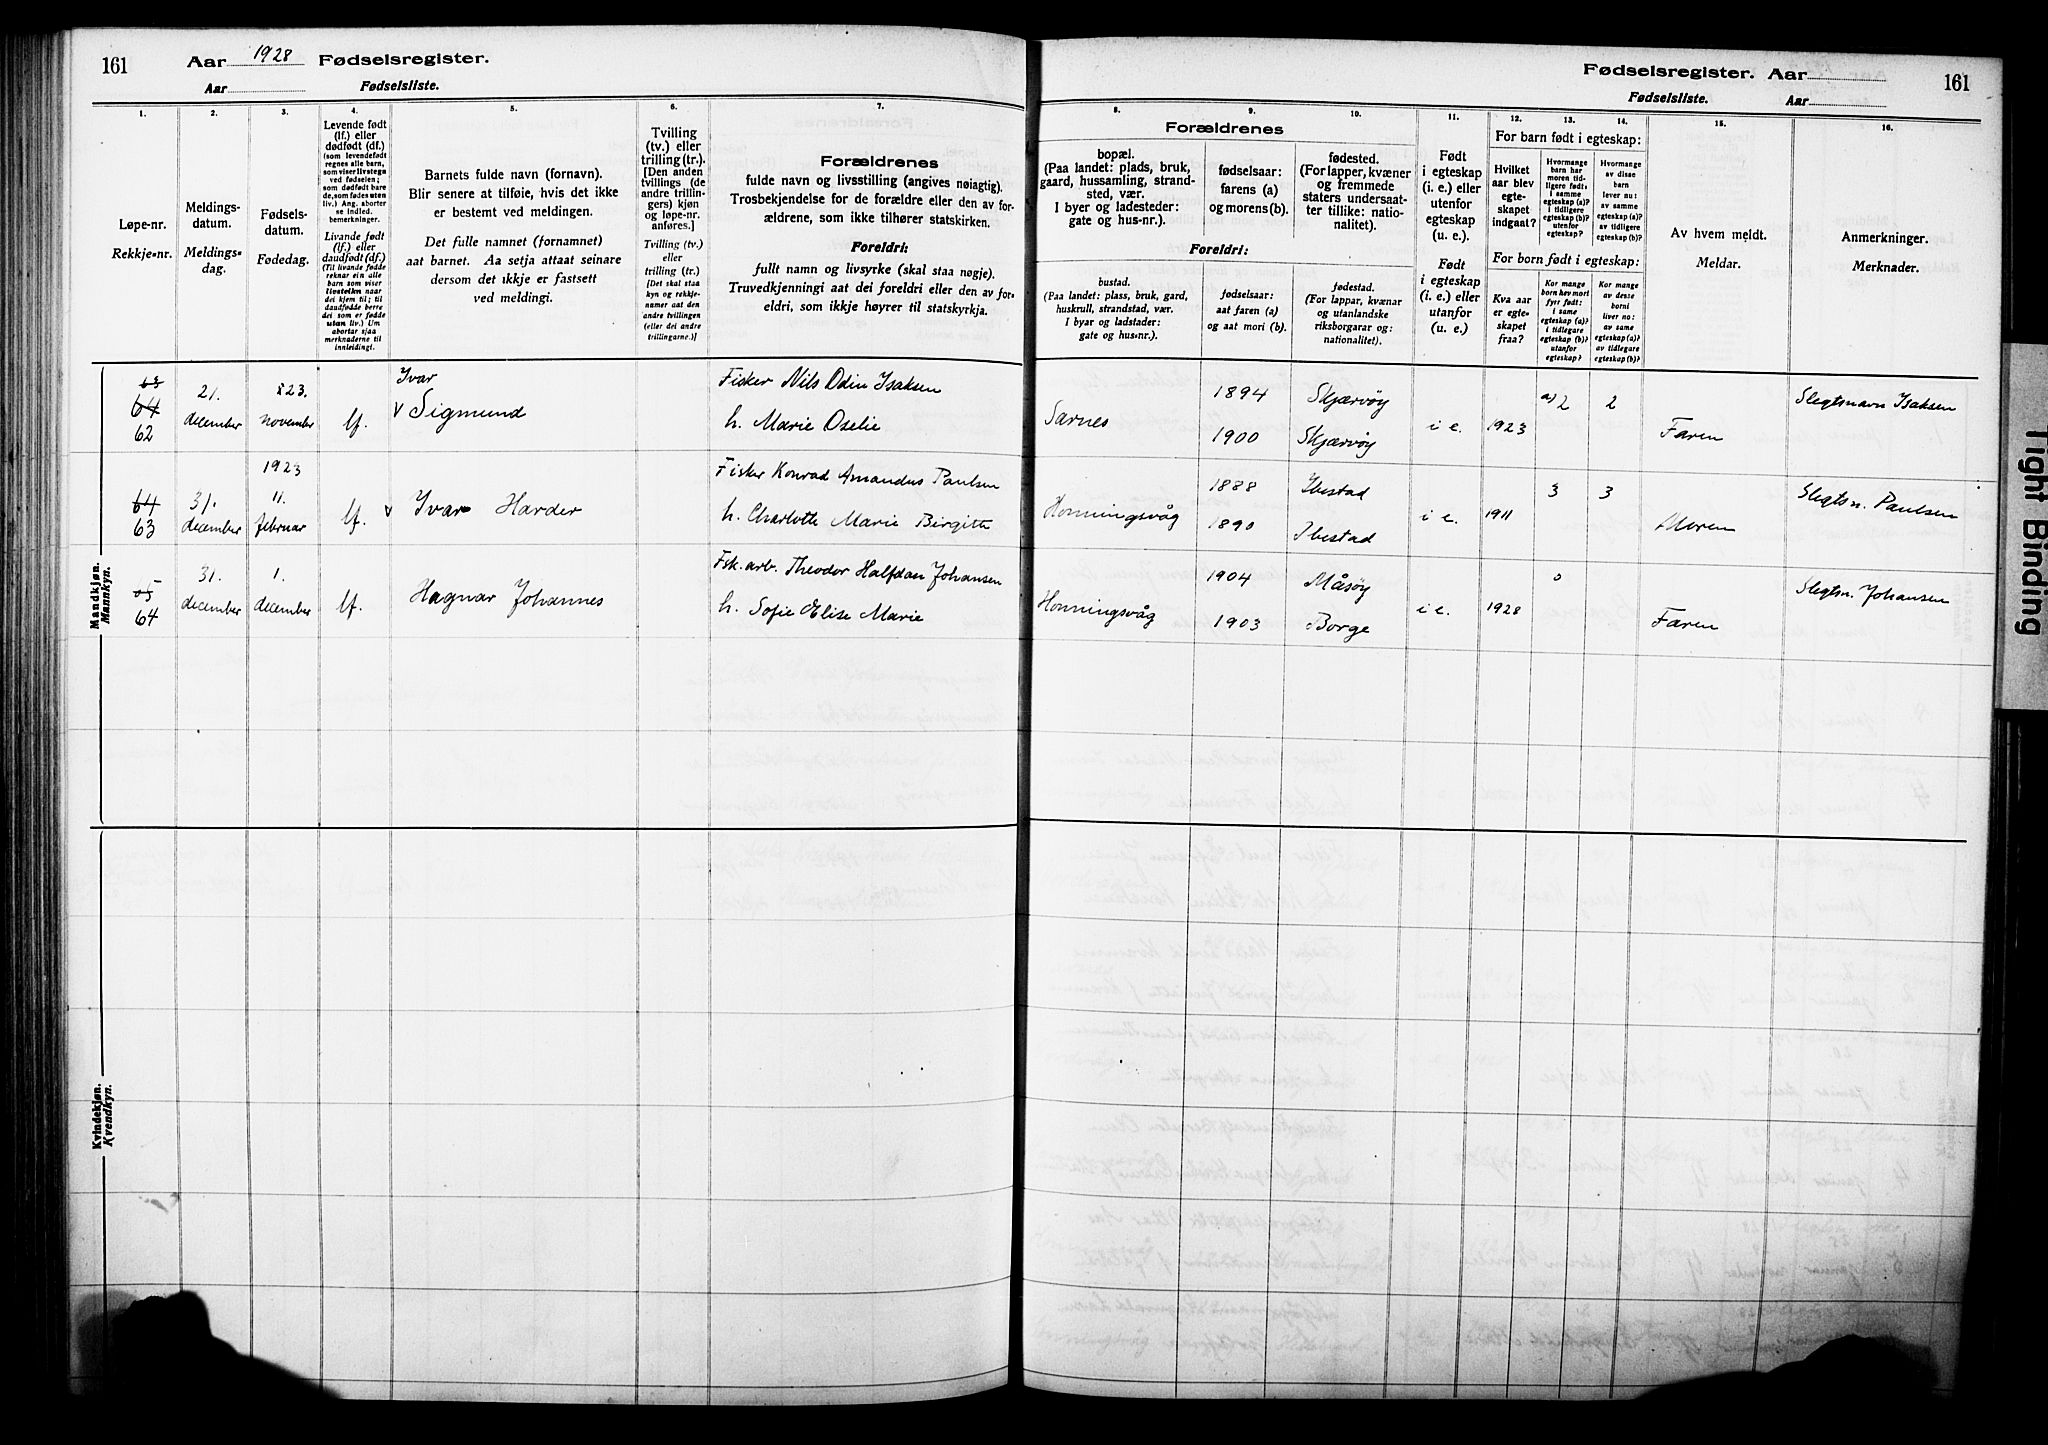 161
Aar 1928 Fødselsregister.
Aar Fødselsliste.
Fødselsregister. Aar
161
Fødselsliste. Aar
1.
Løpe-nr.
Rekkje-nr.
2.
Meldings-
datum.
Meldings-
dag.
3.
Fødsels-
datum.
Fødedag.
4.
Levende født
(lf.) eller
dødfødt (df.)
(som levendefødt
regnes alle barn,
som viser livstegn
ved fødselen;
som dødfødt bare
de, som fødes uten
liv.) Ang. aborter
se indled.
bemerkninger.
Livande født
(lf.) eller
daudfødt (df.)
(Til livande fødde
reknar ein alle
barn som viser
livsteikn naar
dei kjem til; til
daudfødde berre
dei som er fødde
utan liv.) Um
abortar sjaa
merknaderne til
innleidingi.
5.
Barnets fulde navn (fornavn).
Blir senere at tilføie, hvis det ikke
er bestemt ved meldingen.
Det fulle namnet (fornamnet)
aat barnet. Aa setja attaat seinare
dersom det ikkje er fastsett
ved meldingi.
6.
Tvilling
(tv.) eller
trilling (tr.).
[Den anden
tvillings (de
andre trillin-
gers) kjøn
og løpe-nr.
anføres.]
Tvilling (tv.)
eller
trilling (tr.)
[Det skal staa
kyn og rekkje-
numer aat den
andre tvillingen
(eller dei andre
trillingarne.)]
7.
Forældrenes
fulde navn og livsstilling (angives nøiagtig).
Trosbekjendelse for de forældre eller den av for-
ældrene, som ikke tilhører statskirken.
Foreldri:
fullt namn og livsyrke (skal staa nøgje).
Truvedkjenningi aat dei foreldri eller den av for-
eldri, som ikkje høyrer til statskyrkja.
8.
Forældrenes
bopæl.
(Paa landet: plads, bruk,
gaard, hussamling, strand-
sted, vær.
I byer og ladesteder:
gate og hus-nr.).
Foreldri:
bustad.
(Paa landet: plass, bruk, gard,
huskrull, strandstad, vær.
I byar og ladstader:
gate og hus-nr.).
9.
fødselsaar:
farens (a)
og morens (b).
fødselsaar:
aat faren (a)
og aat mori (b).
10.
fødested.
(For lapper, kvæner
og fremmede
staters undersaat-
ter tillike: natio-
nalitet).
fødestad.
(For lappar, kvænar
og utanlandske
riksborgarar og:
nationalitet).
11.
Født
i egteskap
(i. e.) eller
utenfor
egteskap
(u. e.).
Født
i egteskap
(i. e.) eller
utanfor
(u. e.).
12.
For barn født i egteskap:
Hvilket
aar blev
egte-
skapet
indgaat?
For born født i egteskap:
Kva aar
er egte-
skapet
fraa?
13.
Hvormange
barn har
moren tid-
ligere født:
i samme
egteskap (a)?
i tidligere
egteskap (b)?
utenfor
egteskap?
Kor mange
born hev mori
fyrr født:
i same
egteskap (a)?
i tidlegare
egteskap (b)?
utanfor
egteskap?
14.
Hvormange
av disse
barn
lever nu:
av samme
egteskap (a)?
av tidligere
egteskap (b)?
Kor mange
av desse
borni
liver no:
av same
egteskap (a)?
av tidlegare
egteskap (b)?
15.
Av hvem meldt.
Meldar.
16.
Anmerkninger.
Merknader.
Mandkjøn.
Mannkyn.
63
64
62
21.
december
23.
november
lf.
Ivar
v Sigmund
Fisker Nils Odin Isaksen
h. Marie Oselie
Sarnes
1894
1900
Skjærvöy
Skjærvöy
i e.
1923
a) 2
2
Faren
Slegtsnavn Isaksen
64
63
31.
december
1923
11.
februar
lf.
v Ivar Harder
Fisker Konrad Amandus Paulsen
h. Charlotte Marie Birgitte
Honningsvåg
1888
1890
Ibestad
Ibestad
i e.
1911
3
3
Moren
Slegtsn. Paulsen
65
64
31.
december
1.
december
lf.
Hagnar Johannes
Fsk. arb. Theodor Halfdan Johansen
h. Sofie Elise Marie
Honningsvåg
1904
1903
Måsöy
Borge
i e.
1928
0
Faren
Slegtsn. Johansen
Kvindekjøn.
Kvendkyn.
Tight Binding